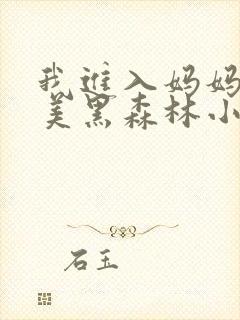 我进入妈妈
美黑森林小
石玉